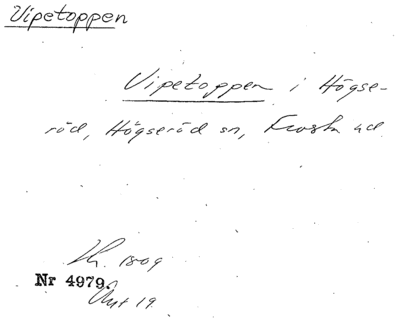 Vipetoppen
Vipetoppen i Högse-
röd, Högseröd sn, Frosta hd
Lh. 1809
Nr 4979.
Akt 19